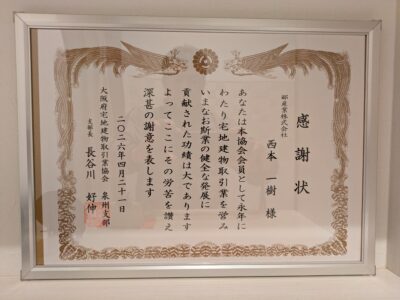 感謝状
郵産業株式会社
西本 一樹 様
あなたは本協会会員として永年に
わたり宅地建物取引業を営み
いまなお斯業の健全な発展に
貢献された功績は大であります
よってここにその労苦を讃え
深甚の謝意を表します
二〇二六年四月二十一日
大阪府宅地建物取引業協会 泉州支部
支部長 長谷川 好伸